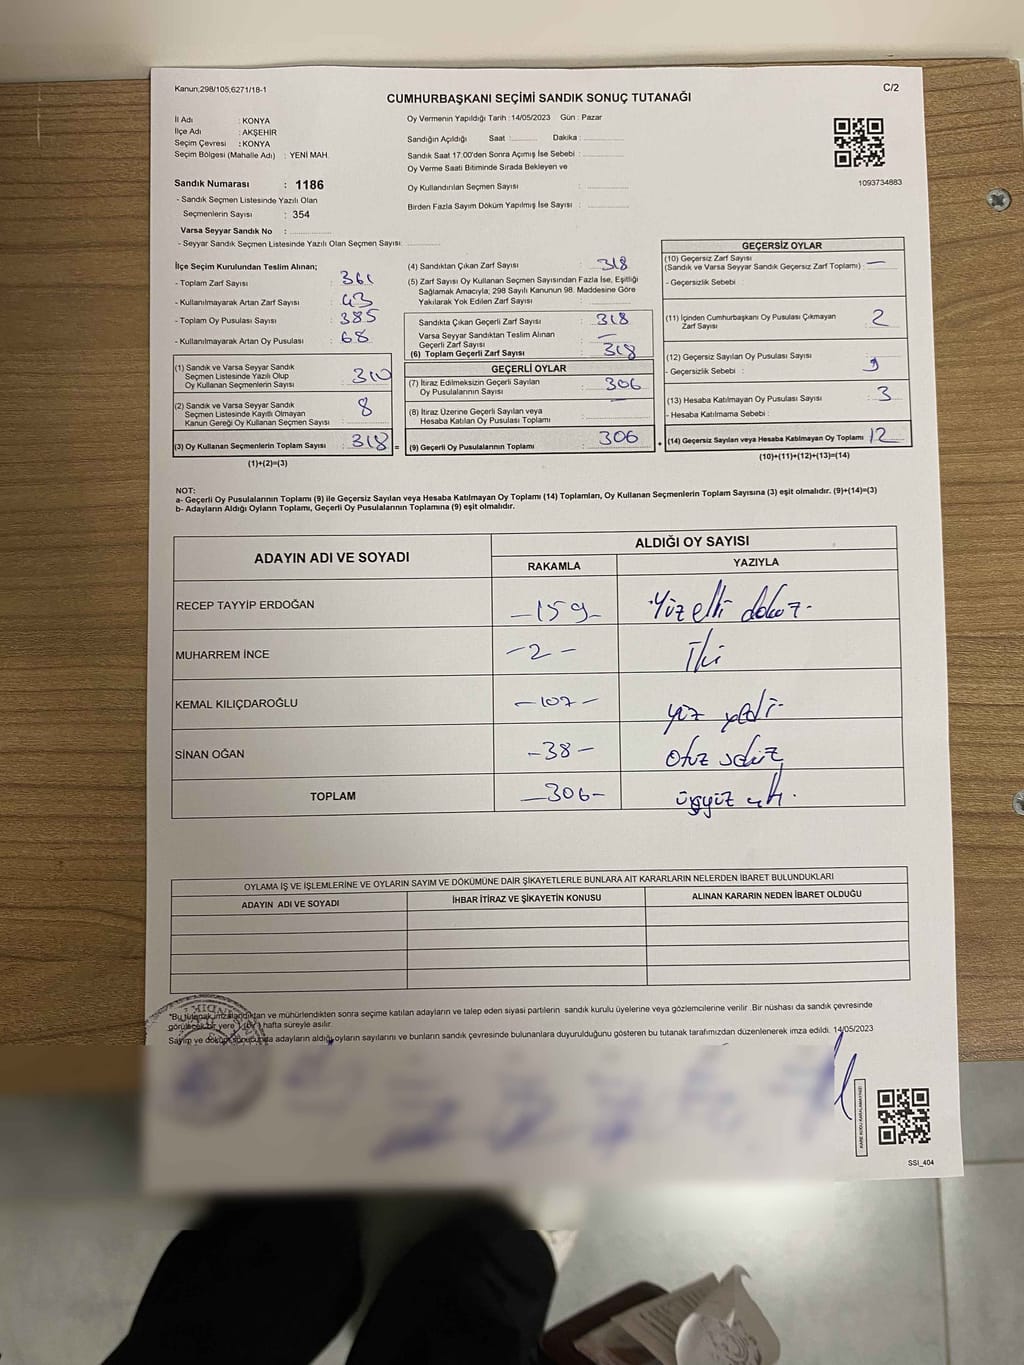 Kanun;298/105,6271/18-1
C/2
CUMHURBAŞKANI SEÇİMİ SANDIK SONUÇ TUTANAĞI
İl Adı : KONYA
İlçe Adı : AKŞEHİR
Seçim Çevresi : KONYA
Seçim Bölgesi (Mahalle Adı) : YENİ MAH.
Sandık Numarası : 1186
- Sandık Seçmen Listesinde Yazılı Olan
Seçmenlerin Sayısı : 354
Varsa Seyyar Sandık No :
- Seyyar Sandık Seçmen Listesinde Yazılı Olan Seçmen Sayısı:
Oy Vermenin Yapıldığı Tarih : 14/05/2023 Gün : Pazar
Sandığın Açıldığı Saat : Dakika :
Sandık Saat 17.00'den Sonra Açımış İse Sebebi :
Oy Verme Saati Bitiminde Sırada Bekleyen ve
Oy Kullandırılan Seçmen Sayısı :
Birden Fazla Sayım Döküm Yapılmış İse Sayısı :
1093734883
İlçe Seçim Kurulundan Teslim Alınan;
- Toplam Zarf Sayısı : 361
- Kullanılmayarak Artan Zarf Sayısı : 43
- Toplam Oy Pusulası Sayısı : 385
- Kullanılmayarak Artan Oy Pusulası : 68
(1) Sandık ve Varsa Seyyar Sandık
Seçmen Listesinde Yazılı Olup
Oy Kullanan Seçmenlerin Sayısı : 310
(2) Sandık ve Varsa Seyyar Sandık
Seçmen Listesinde Kayıtlı Olmayan
Kanun Gereği Oy Kullanan Seçmen Sayısı : 8
(3) Oy Kullanan Seçmenlerin Toplam Sayısı : 318 =
(1)+(2)=(3)
(4) Sandıktan Çıkan Zarf Sayısı : 318
(5) Zarf Sayısı Oy Kullanan Seçmen Sayısından Fazla İse, Eşitliği
Sağlamak Amacıyla; 298 Sayılı Kanunun 98. Maddesine Göre
Yakılarak Yok Edilen Zarf Sayısı :
Sandıkta Çıkan Geçerli Zarf Sayısı : 318
Varsa Seyyar Sandıktan Teslim Alınan
Geçerli Zarf Sayısı : —
(6) Toplam Geçerli Zarf Sayısı : 318
GEÇERLİ OYLAR
(7) İtiraz Edilmeksizin Geçerli Sayılan
Oy Pusulalarının Sayısı : 306
(8) İtiraz Üzerine Geçerli Sayılan veya
Hesaba Katılan Oy Pusulası Toplamı :
(9) Geçerli Oy Pusulalarının Toplamı : 306 +
GEÇERSİZ OYLAR
(10) Geçersiz Zarf Sayısı
(Sandık ve Varsa Seyyar Sandık Geçersiz Zarf Toplamı) : —
- Geçersizlik Sebebi :
(11) İçinden Cumhurbaşkanı Oy Pusulası Çıkmayan
Zarf Sayısı : 2
(12) Geçersiz Sayılan Oy Pusulası Sayısı :
- Geçersizlik Sebebi :
(13) Hesaba Katılmayan Oy Pusulası Sayısı : 3
- Hesaba Katılmama Sebebi :
(14) Geçersiz Sayılan veya Hesaba Katılmayan Oy Toplamı : 12
(10)+(11)+(12)+(13)=(14)
NOT:
a- Geçerli Oy Pusulalarının Toplamı (9) ile Geçersiz Sayılan veya Hesaba Katılmayan Oy Toplamı (14) Toplamları, Oy Kullanan Seçmenlerin Toplam Sayısına (3) eşit olmalıdır. (9)+(14)=(3)
b- Adayların Aldığı Oyların Toplamı, Geçerli Oy Pusulalarının Toplamına (9) eşit olmalıdır.
ADAYIN ADI VE SOYADI ALDIĞI OY SAYISI
RAKAMLA YAZIYLA
RECEP TAYYİP ERDOĞAN —159— Yüz elli dokuz-
MUHARREM İNCE —2— İki
KEMAL KILIÇDAROĞLU —107— yüz yedi-
SİNAN OĞAN —38— Otuz sekiz
TOPLAM —306— üçyüz altı.
OYLAMA İŞ VE İŞLEMLERİNE VE OYLARIN SAYIM VE DÖKÜMÜNE DAİR ŞİKAYETLERLE BUNLARA AİT KARARLARIN NELERDEN İBARET BULUNDUKLARI
ADAYIN ADI VE SOYADI İHBAR İTİRAZ VE ŞİKAYETİN KONUSU ALINAN KARARIN NEDEN İBARET OLDUĞU
*Bu tutanak imzalandıktan ve mühürlendikten sonra seçime katılan adayların ve talep eden siyasi partilerin sandık kurulu üyelerine veya gözlemcilerine verilir .Bir nüshası da sandık çevresinde
görülecek bir yere 1 (bir) hafta süreyle asılır.
Sayım ve döküm sonucunda adayların aldığı oyların sayılarını ve bunların sandık çevresinde bulunanlara duyurulduğunu gösteren bu tutanak tarafımızdan düzenlenerek imza edildi. 14/05/2023
SSİ_404